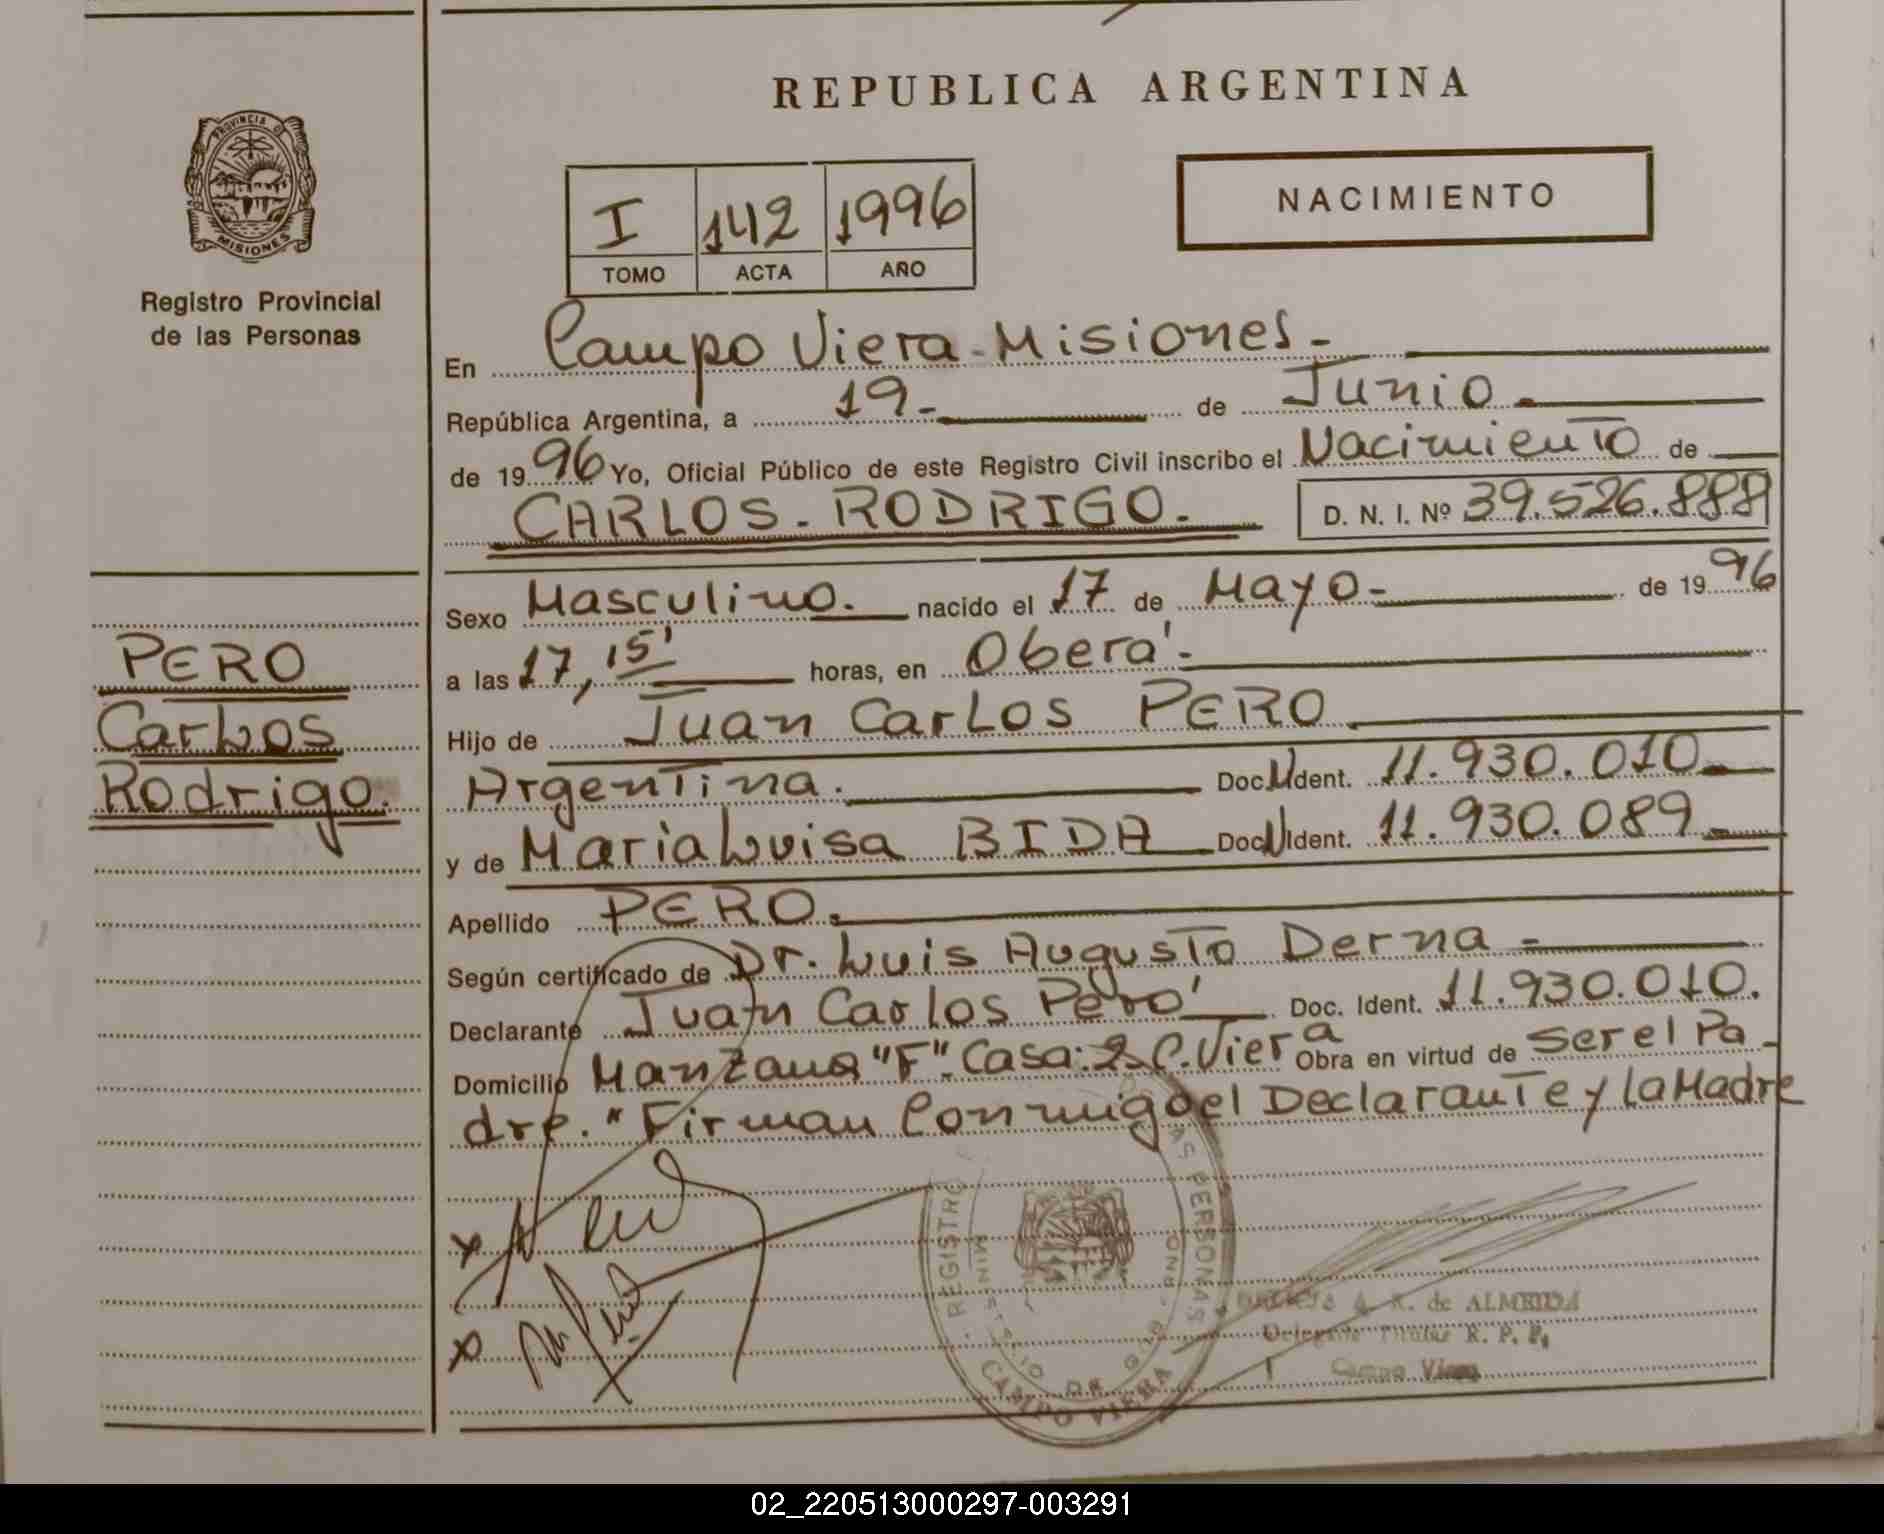 REPUBLICA ARGENTINA
PROVINCIA DE
MISIONES
Registro Provincial
de las Personas
I 142 1996
TOMO ACTA AÑO
NACIMIENTO
En Campo Viera - Misiones -
República Argentina, a 19 - de Junio -
de 1996 Yo, Oficial Público de este Registro Civil inscribo el Nacimiento de
CARLOS - RODRIGO. D. N. I. Nº 39.526.888
Sexo Masculino. nacido el 17 de Mayo - de 1996
a las 17,15' horas, en Oberá -
Hijo de Juan Carlos PERO
Argentina. Doc. N Ident. 11.930.010 -
y de Maria Luisa BIDA Doc. N Ident. 11.930.089 -
Apellido PERO.
Según certificado de Dr. Luis Augusto Derna -
Declarante Juan Carlos Pero' Doc. Ident. 11.930.010.
Domicilio Manzana "F". Casa: 2 C. Viera Obra en virtud de ser el Pa -
dre. "Firman Conmigo el Declarante y La Madre
PERO
Carlos
Rodrigo.
REGISTRO AS PERSONAS
CAMPO VIERA
A. R. de ALMEIDA
Delegada Titular R. P. P.
Campo Viera
02_220513000297-003291